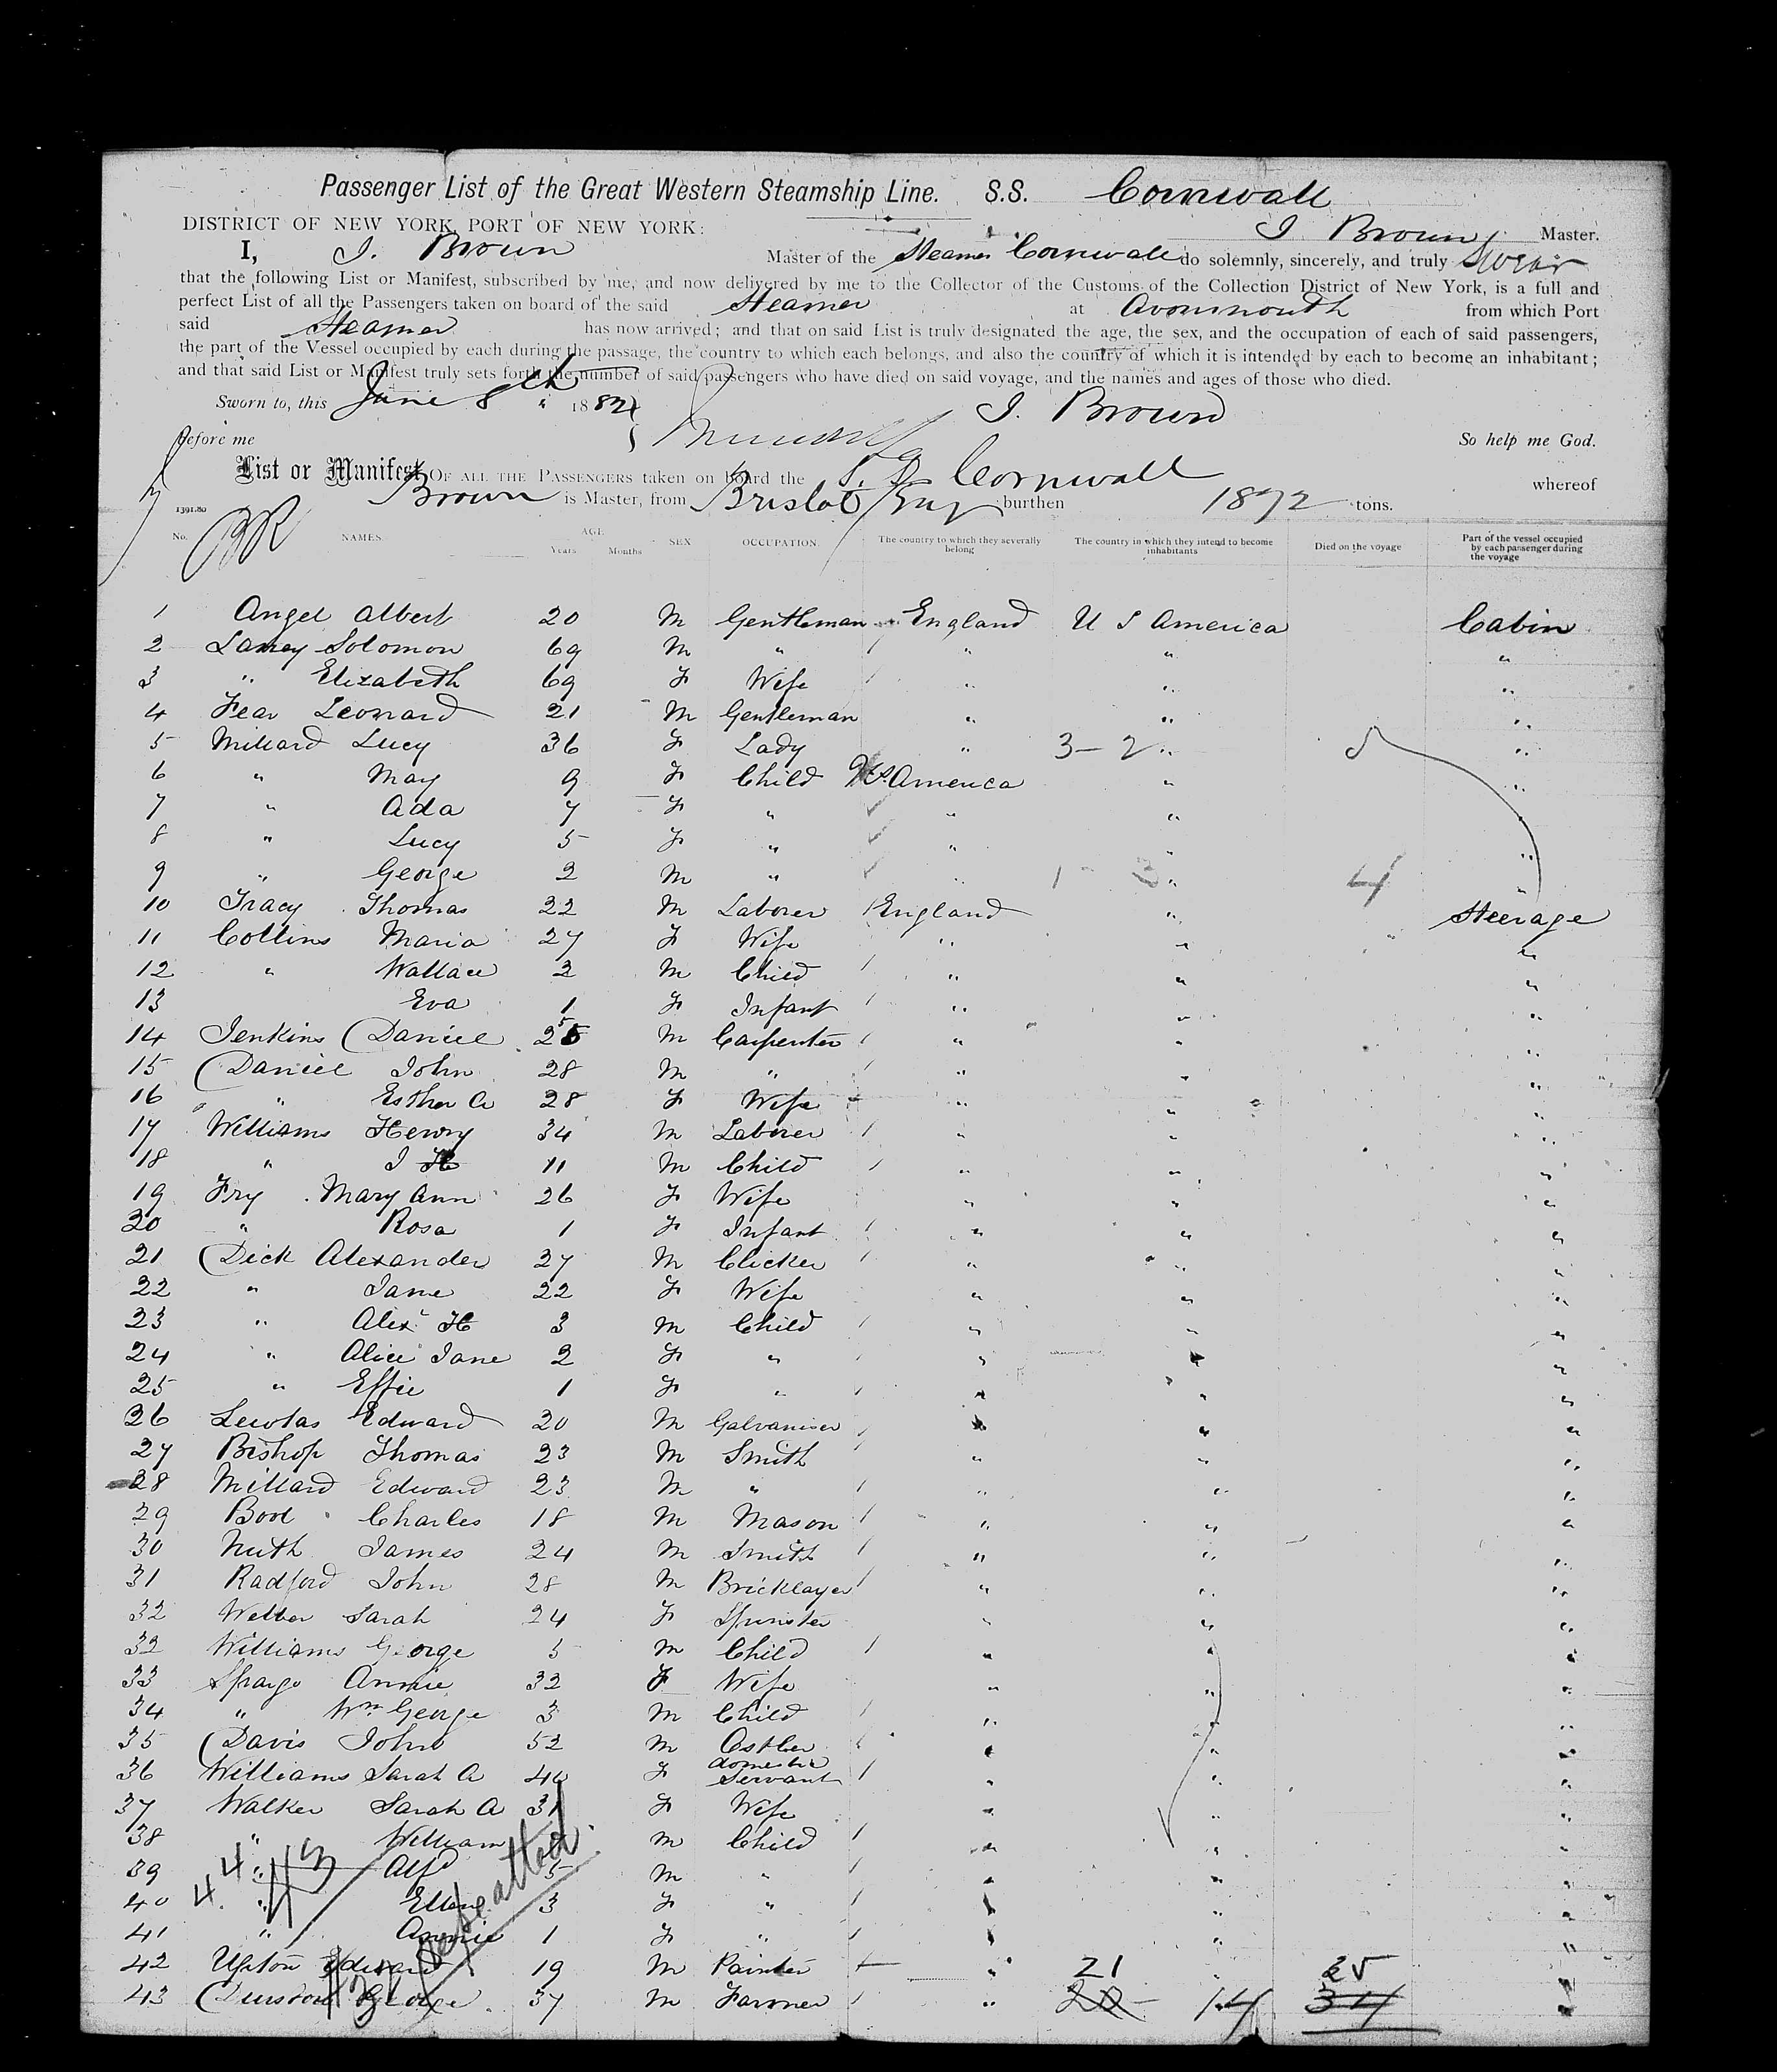 Passenger List of the Great Western Steamship Line. S.S. Cornwall
DISTRICT OF NEW YORK, PORT OF NEW YORK: J. Brown Master.
I, J. Brown Master of the Steamer Cornwall do solemnly, sincerely, and truly Swear
that the following List or Manifest, subscribed by me, and now delivered by me to the Collector of the Customs of the Collection District of New York, is a full and
perfect List of all the Passengers taken on board of the said Steamer at Avonmouth from which Port
said Steamer has now arrived; and that on said List is truly designated the age, the sex, and the occupation of each of said passengers,
the part of the Vessel occupied by each during the passage, the country to which each belongs, and also the country of which it is intended by each to become an inhabitant;
and that said List or Manifest truly sets forth the number of said passengers who have died on said voyage, and the names and ages of those who died.
Sworn to, this June 8th 1882 J. Brown
Before me So help me God.
List or Manifest OF ALL THE PASSENGERS taken on board the S.S. Cornwall whereof
Brown is Master, from Bristol Eng burthen 1872 tons.
1391.80
No. NAMES. AGE Years Months SEX OCCUPATION. The country to which they severally belong The country in which they intend to become inhabitants Died on the voyage Part of the vessel occupied by each passenger during the voyage
1 Angel Albert 20 M Gentleman England U S America Cabin
2 Laney Solomon 69 M " " " "
3 " Elizabeth 69 F Wife " " "
4 Fear Leonard 21 M Gentleman " " "
5 Millard Lucy 36 F Lady " 3-2 " "
6 " May 9 F Child U.S. America " "
7 " Ada 7 F " " "
8 " Lucy 5 F " " " "
9 " George 2 M " " 1 3 " 4 "
10 Tracy Thomas 22 M Laborer England " Steerage
11 Collins Maria 27 F Wife " " "
12 " Wallace 2 M Child " " "
13 Eva 1 F Infant " " "
14 Jenkins Daniel 25 M Carpenter " " "
15 Daniel John 28 M " " " "
16 " Esther A 28 F Wife " " "
17 Williams Henry 34 M Laborer " " "
18 " J H 11 M Child " " "
19 Fry Mary Ann 26 F Wife " " "
20 " Rosa 1 F Infant " " "
21 Dick Alexander 27 M Clicker " " "
22 " Jane 22 F Wife " " "
23 " Alexr H 3 M Child " " "
24 " Alice Jane 2 F " " " "
25 " Effie 1 F " " " "
26 Edward 20 M Galvaniser " " "
27 Bishop Thomas 23 M Smith " " "
28 Millard Edward 23 M " " " "
29 Bool Charles 18 M Mason " " "
30 Nuth James 24 M Smith " " "
31 Radford John 28 M Bricklayer " " "
32 Webber Sarah 24 F Spinster " " "
32 Williams George 5 M Child " " "
33 Spargo Annie 32 F Wife " " "
34 " Wm George 3 M Child " " "
35 Davis John 52 M Ostler " " "
36 Williams Sarah A 40 F domestic Servant " " "
37 Walker Sarah A 31 F Wife " " "
38 " William M Child " " "
39 " Alfd 5 M " " " "
40 " Ellen 3 F " " " "
41 " Annie 1 F " " " "
42 Upton Edward 19 M Painter " 21 " 25 "
43 Durston George 37 M Farmer " 20 14 34 "
44 43
repeated